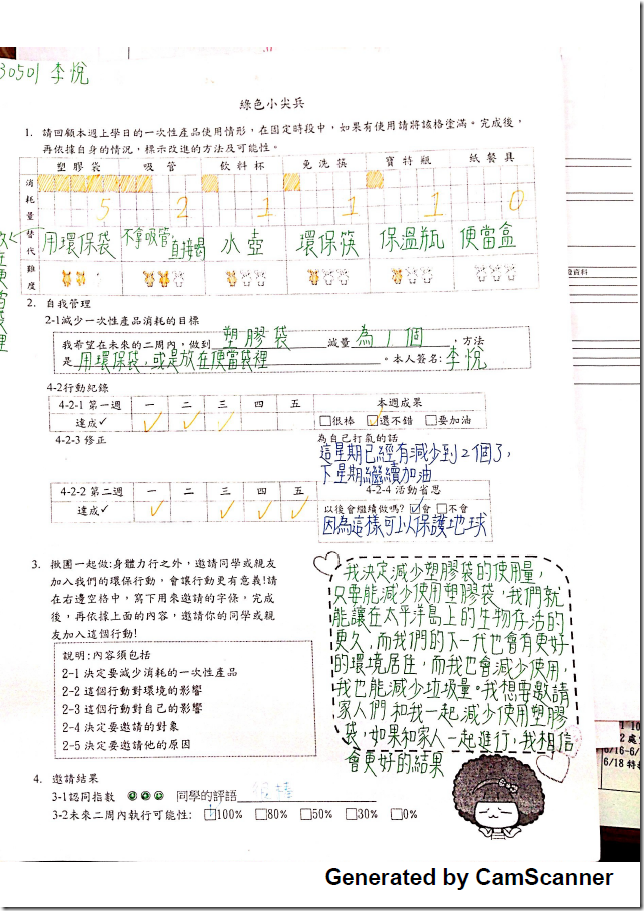 30501 李悅
綠色小尖兵
1. 請回顧本週上學日的一次性產品使用情形，在固定時段中，如果有使用請將該格塗滿。完成後，
再依據自身的情況，標示改進的方法及可能性。
塑膠袋 吸管 飲料杯 免洗筷 寶特瓶 紙餐具
消耗量 5 2 1 1 1 0
替代 用環保袋 不拿吸管，直接喝 水壺 環保筷 保溫瓶 便當盒
難度
2. 自我管理
2-1減少一次性產品消耗的目標
我希望在未來的二周內，做到 塑膠袋 減量 為1個，方法
是 用環保袋，或是放在便當袋裡。本人簽名：李悅
4-2行動紀錄
4-2-1 第一週 一 二 三 四 五 本週成果
達成✓ ✓ ✓ ✓ □很棒 ☑還不錯 □要加油
4-2-3 修正 為自己打氣的話
這星期已經有減少到2個了，
下星期繼續加油
4-2-2 第二週 一 二 三 四 五 4-2-4 活動省思
達成✓ ✓ ✓ ✓ ✓ 以後會繼續做嗎?☑會 □不會
因為這樣可以保護地球
3. 揪團一起做:身體力行之外，邀請同學或親友
加入我們的環保行動，會讓行動更有意義!請
在右邊空格中，寫下用來邀請的字條，完成
後，再依據上面的內容，邀請你的同學或親
友加入這個行動!
說明:內容須包括
2-1 決定要減少消耗的一次性產品
2-2 這個行動對環境的影響
2-3 這個行動對自己的影響
2-4 決定要邀請的對象
2-5 決定要邀請他的原因
我決定減少塑膠袋的使用量，
只要能減少使用塑膠袋，我們就
能讓在太平洋島上的生物存活的
更久，而我們的下一代也會有更好
的環境居住，而我也會減少使用，
我也能減少垃圾量。我想要邀請
家人們和我一起減少使用塑膠
袋，如果和家人一起進行，我相信
會更好的結果
4. 邀請結果
3-1認同指數 同學的評語 很棒
3-2未來二周內執行可能性: ☑100% □80% □50% □30% □0%
資料
6/18
Generated by CamScanner